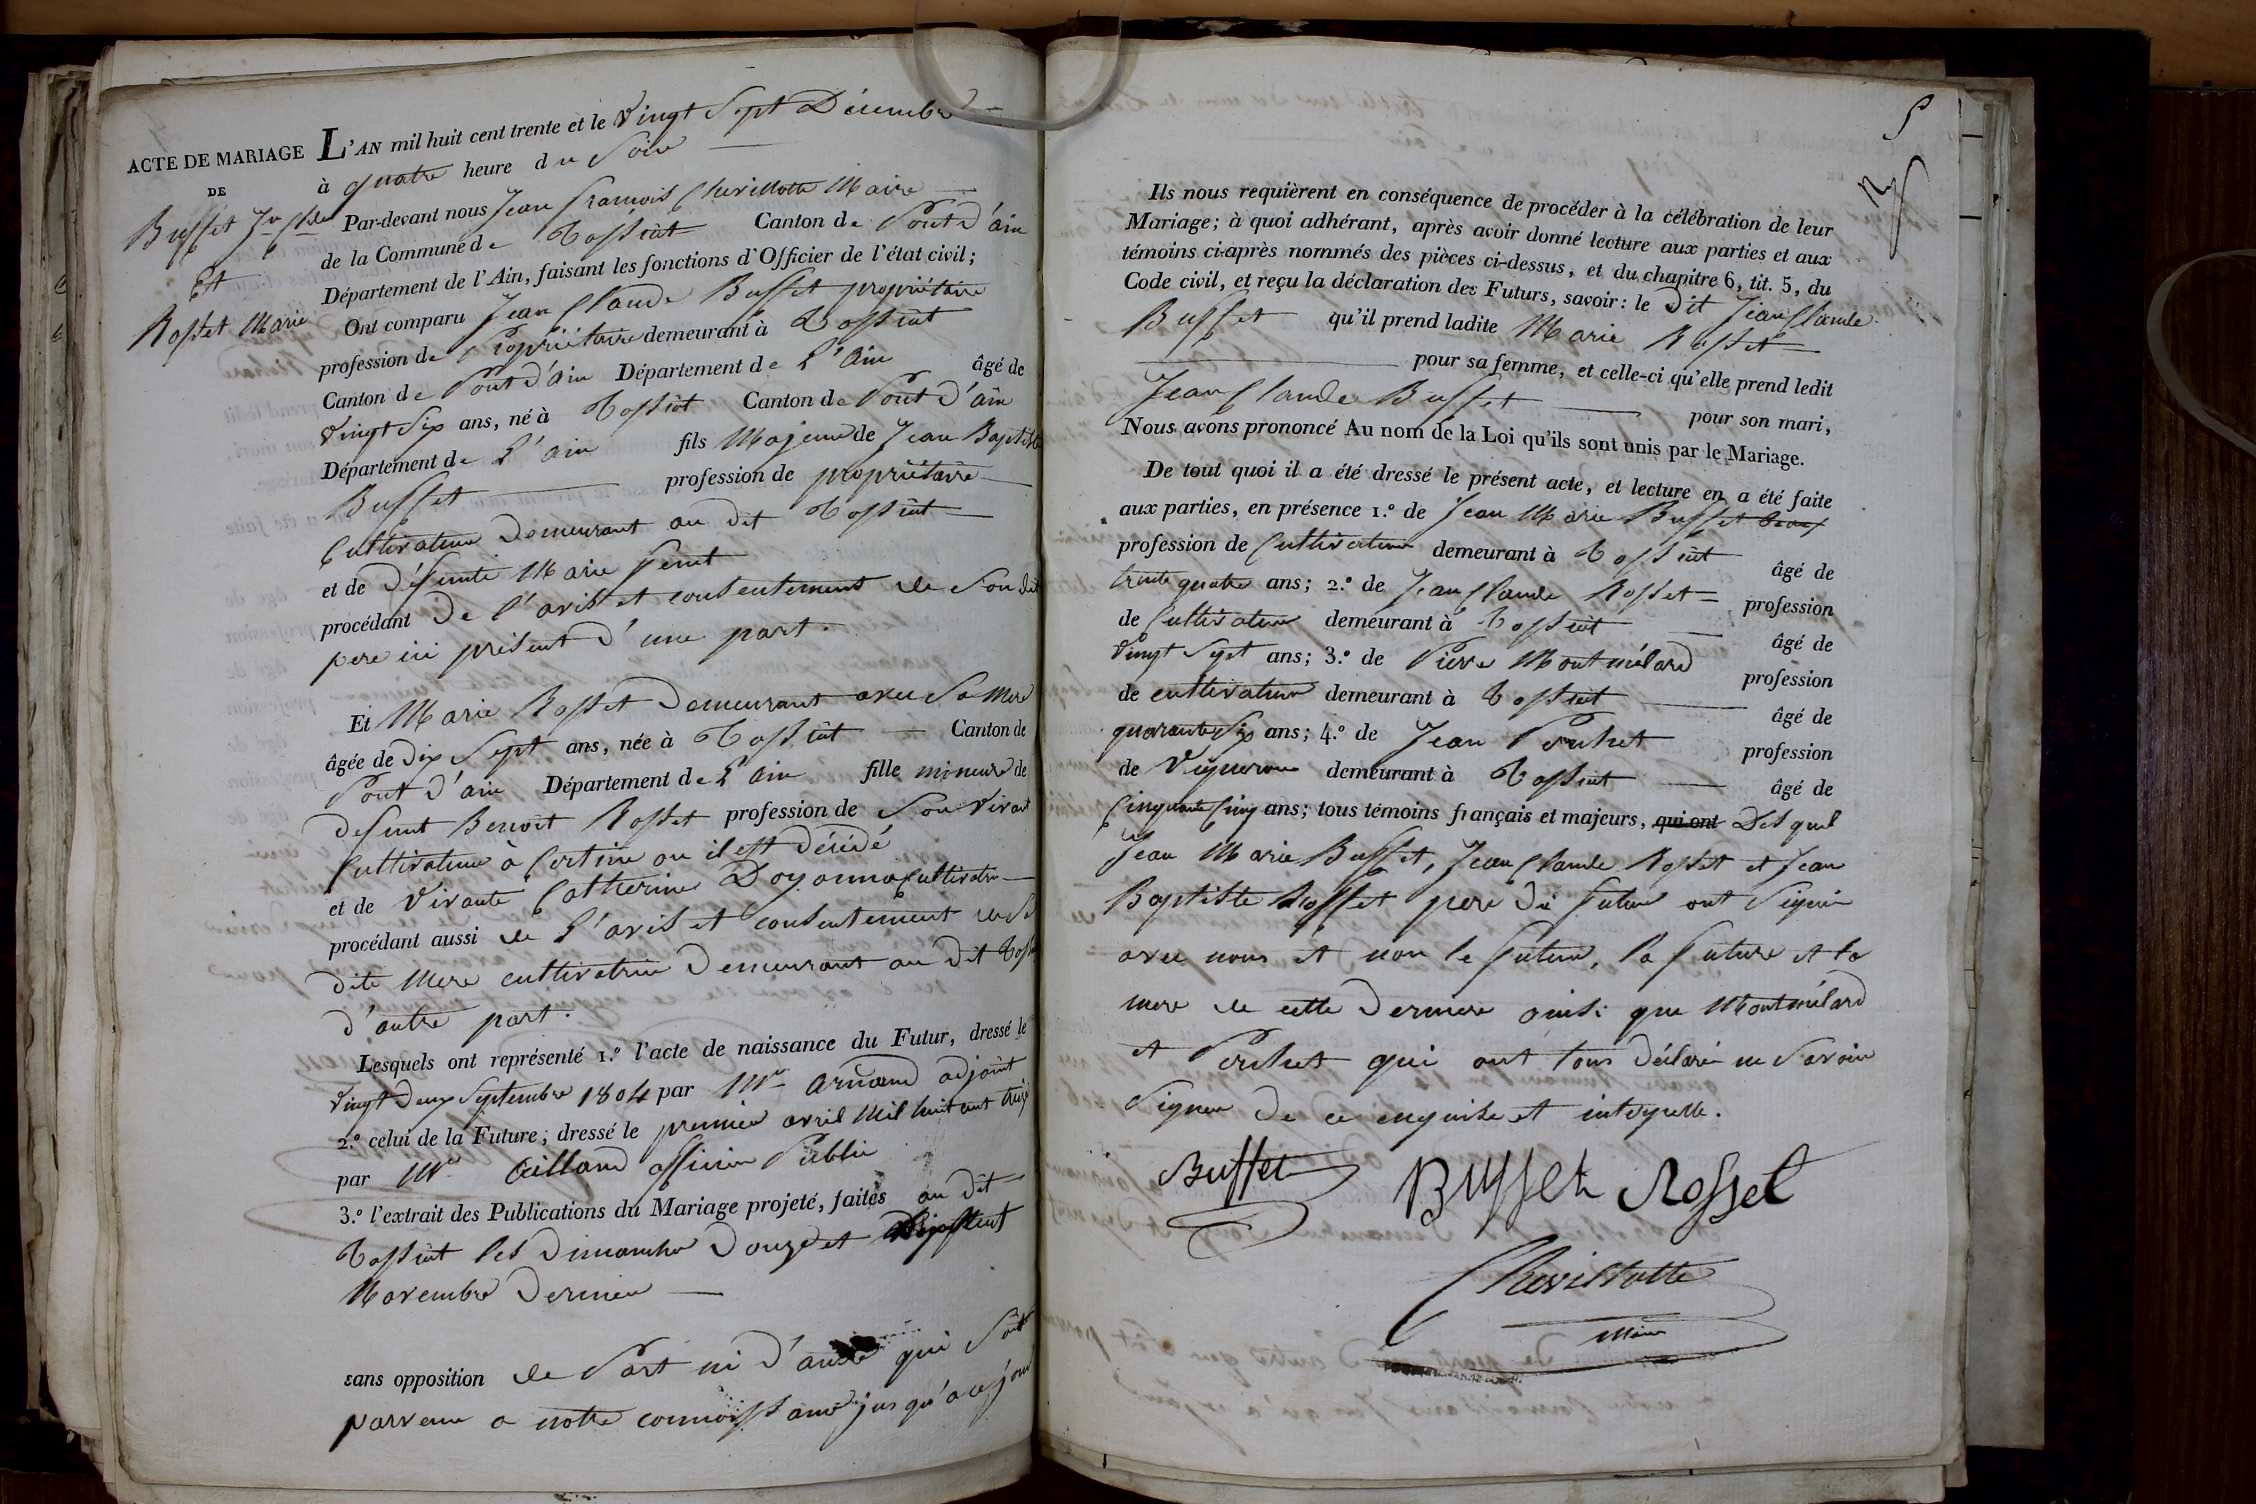 ACTE DE MARIAGE
DE
Buffet Jn Cde
Et
Rosset Marie
L'AN mil huit cent trente et le Vingt Sept Décembre
à quatre heure du Soir
Par-devant nous Jean François Chevillotte Maire
de la Commune de Tossiat Canton de Pont d'ain
Département de l'Ain, faisant les fonctions d'Officier de l'état civil;
Ont comparu Jean Claude Buffet propriétaire
profession de Propriétaire demeurant à Tossiat
Canton de Pont d'Ain Département de L'Ain âgé de
Vingt Six ans, né à Tossiat Canton de Pont d'ain
Département de L'ain fils Majeur de Jean Baptiste
Buffet profession de propriétaire
Cultivateur demeurant au dit Tossiat
et de défunte Marie
procédant De l'avis et consentement de Son dit
pere ici présent d'une part.
Et Marie Rosset Demeurant avec Sa Mere
âgée de Dix Sept ans, née à Tossiat Canton de
Pont d'ain Département de L'Ain fille mineure de
defunt Benoit Rosset profession de Son Vivant
Cultivateur à Certine ou il est décédé
et de Vivante Catherine Doyonna Cultivatrice
procédant aussi de L'avis et consentement de Sa
dite Mere cultivatrice Demeurant au dit Tossiat
d'autre part.
Lesquels ont représenté 1.º l'acte de naissance du Futur, dressé le
Vingt Deux Septembre 1804 par Mr Arnaud adjoint
2.º celui de la Future; dressé le premier avril Mil huit cent treize
par Mr officier Public
3.º l'extrait des Publications du Mariage projeté, faites au dit
Tossiat les dimanches Douze et
Novembre Dernier
sans opposition de Part ni d'autre qui Soit
parvenu a notre connoissance jusqu'a ce jour
5
Ils nous requièrent en conséquence de procéder à la célébration de leur
Mariage; à quoi adhérant, après avoir donné lecture aux parties et aux
témoins ci-après nommés des pièces ci-dessus, et du chapitre 6, tit. 5, du
Code civil, et reçu la déclaration des Futurs, savoir: le Dit Jean Claude
Buffet qu'il prend ladite Marie Rosset
pour sa femme, et celle-ci qu'elle prend ledit
Jean Claude Buffet pour son mari,
Nous avons prononcé Au nom de la Loi qu'ils sont unis par le Mariage.
De tout quoi il a été dressé le présent acte, et lecture en a été faite
aux parties, en présence 1.º de Jean Marie Buffet
profession de Cultivateur demeurant à Tossiat âgé de
trente quatre ans; 2.º de Jean Claude Rosset profession
de Cultivateur demeurant à Tossiat âgé de
Vingt Sept ans; 3.º de Pierre Montmélard profession
de cultivateur demeurant à Tossiat âgé de
quarante Six ans; 4.º de Jean profession
de Vigneron demeurant à Tossiat âgé de
Cinquante Cinq ans; tous témoins français et majeurs, qui ont Des quel
Jean Marie Buffet, Jean Claude Rosset et Jean
Baptiste Buffet pere du futur ont Signé
avec nous et non le futur, la future et la
mere de cette Derniere ainsi que Montmélard
et qui ont tous déclaré ne Savoir
Signer De ce enquise et interpelle.
Buffet Buffet Rosset
Chevillotte
Maire